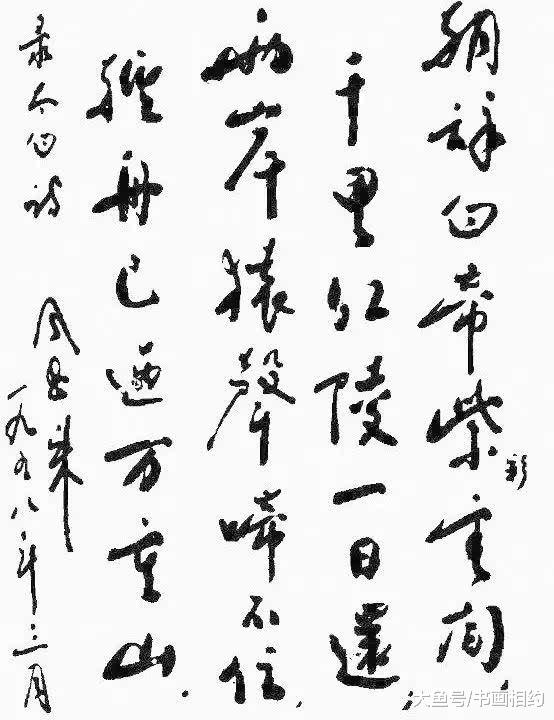 朝辞白帝紫雲间，
彩
千里江陵一日還；
两岸猿聲啼不住，
轻舟已過万重山.
录太白诗
一九九八年三月
大鱼号/书画相约